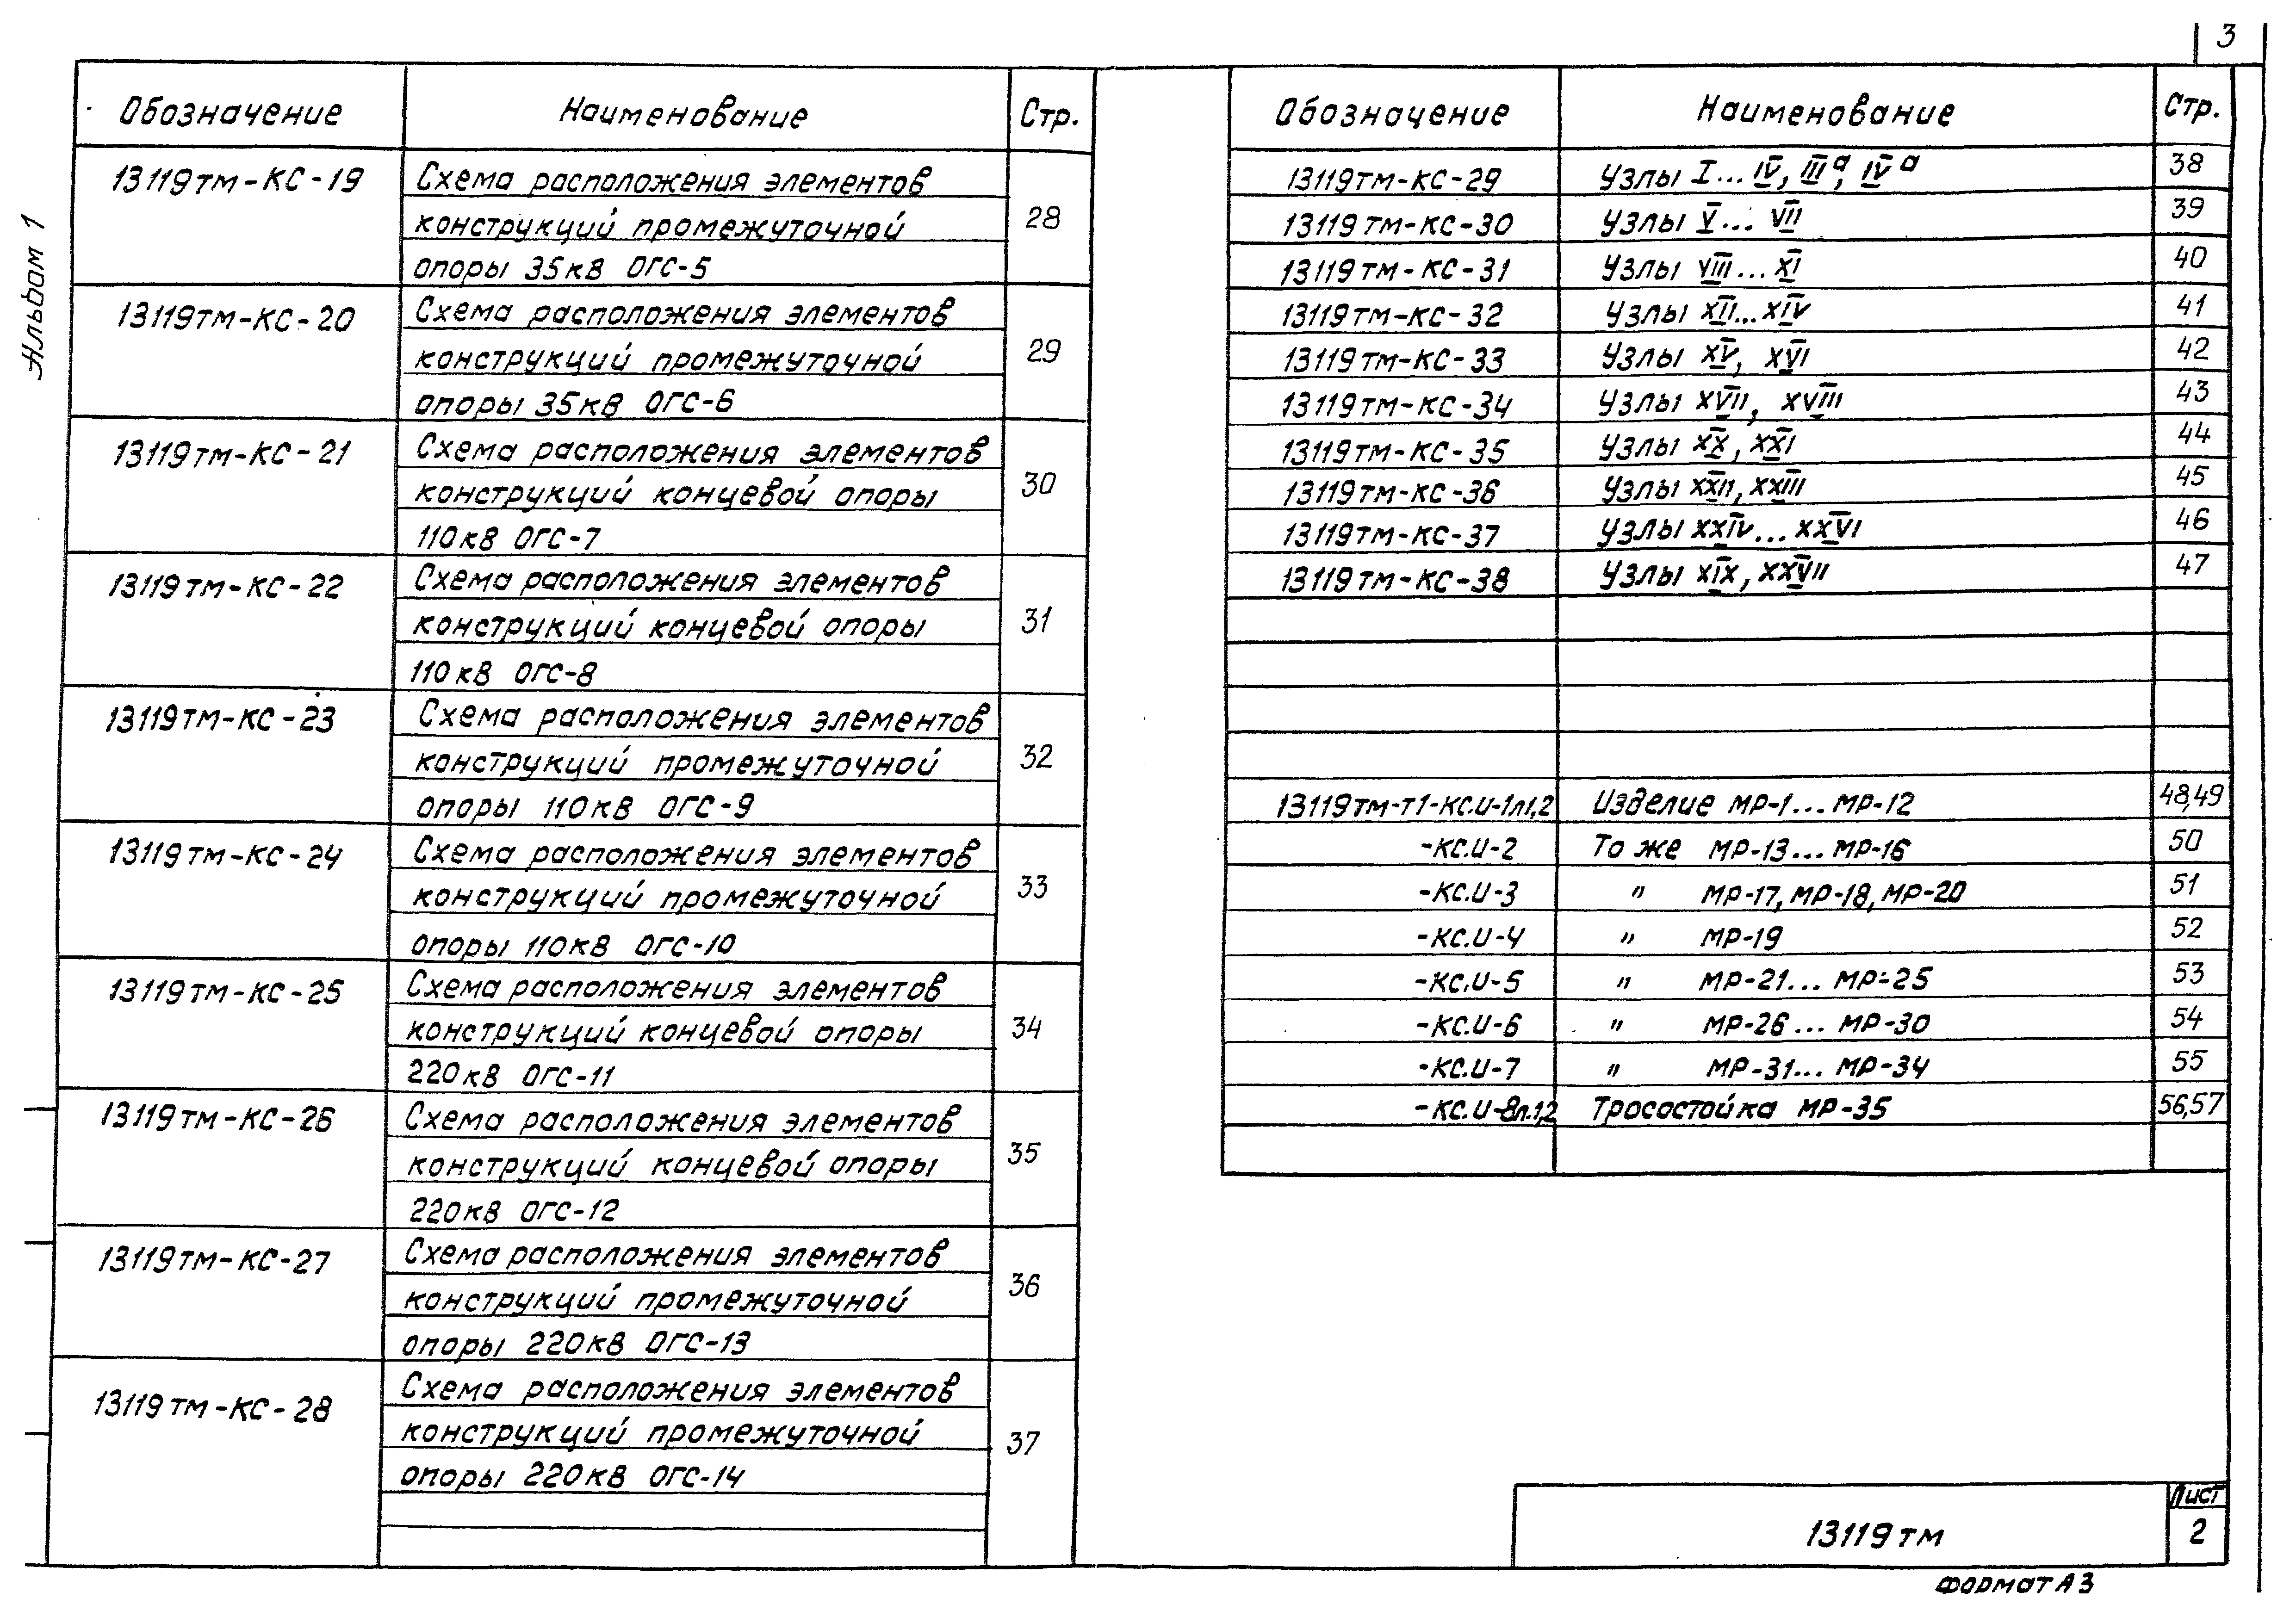 3
Альбом 1
Обозначение Наименование Стр.
13119тм-КС-19 Схема расположения элементов
конструкций промежуточной 28
опоры 35кв ОГС-5
13119тм-КС-20 Схема расположения элементов
конструкций промежуточной 29
опоры 35кв ОГС-6
13119тм-КС-21 Схема расположения элементов
конструкций концевой опоры 30
110кв ОГС-7
13119тм-КС-22 Схема расположения элементов
конструкций концевой опоры 31
110кв ОГС-8
13119тм-КС-23 Схема расположения элементов
конструкций промежуточной 32
опоры 110кв ОГС-9
13119тм-КС-24 Схема расположения элементов
конструкций промежуточной 33
опоры 110кв ОГС-10
13119тм-КС-25 Схема расположения элементов
конструкций концевой опоры 34
220кв ОГС-11
13119тм-КС-26 Схема расположения элементов
конструкций концевой опоры 35
220кв ОГС-12
13119тм-КС-27 Схема расположения элементов
конструкций промежуточной 36
опоры 220кв ОГС-13
13119тм-КС-28 Схема расположения элементов
конструкций промежуточной 37
опоры 220кв ОГС-14
Обозначение Наименование Стр.
13119тм-КС-29 Узлы I...IV, IIIа, IVа 38
13119тм-КС-30 Узлы V...VII 39
13119тм-КС-31 Узлы VIII...XI 40
13119тм-КС-32 Узлы XII...XIV 41
13119тм-КС-33 Узлы XV, XVI 42
13119тм-КС-34 Узлы XVII, XVIII 43
13119тм-КС-35 Узлы XX, XXI 44
13119тм-КС-36 Узлы XXII, XXIII 45
13119тм-КС-37 Узлы XXIV...XXVI 46
13119тм-КС-38 Узлы XIX, XXVII 47
13119тм-т1-КС.И-1л1,2 Изделие МР-1...МР-12 48,49
-КС.И-2 То же МР-13...МР-16 50
-КС.И-3 " МР-17, МР-18, МР-20 51
-КС.И-4 " МР-19 52
-КС.И-5 " МР-21...МР-25 53
-КС.И-6 " МР-26...МР-30 54
-КС.И-7 " МР-31...МР-34 55
-КС.И-8л.1,2 Тросостойка МР-35 56,57
13119тм
Лист
2
Формат А3